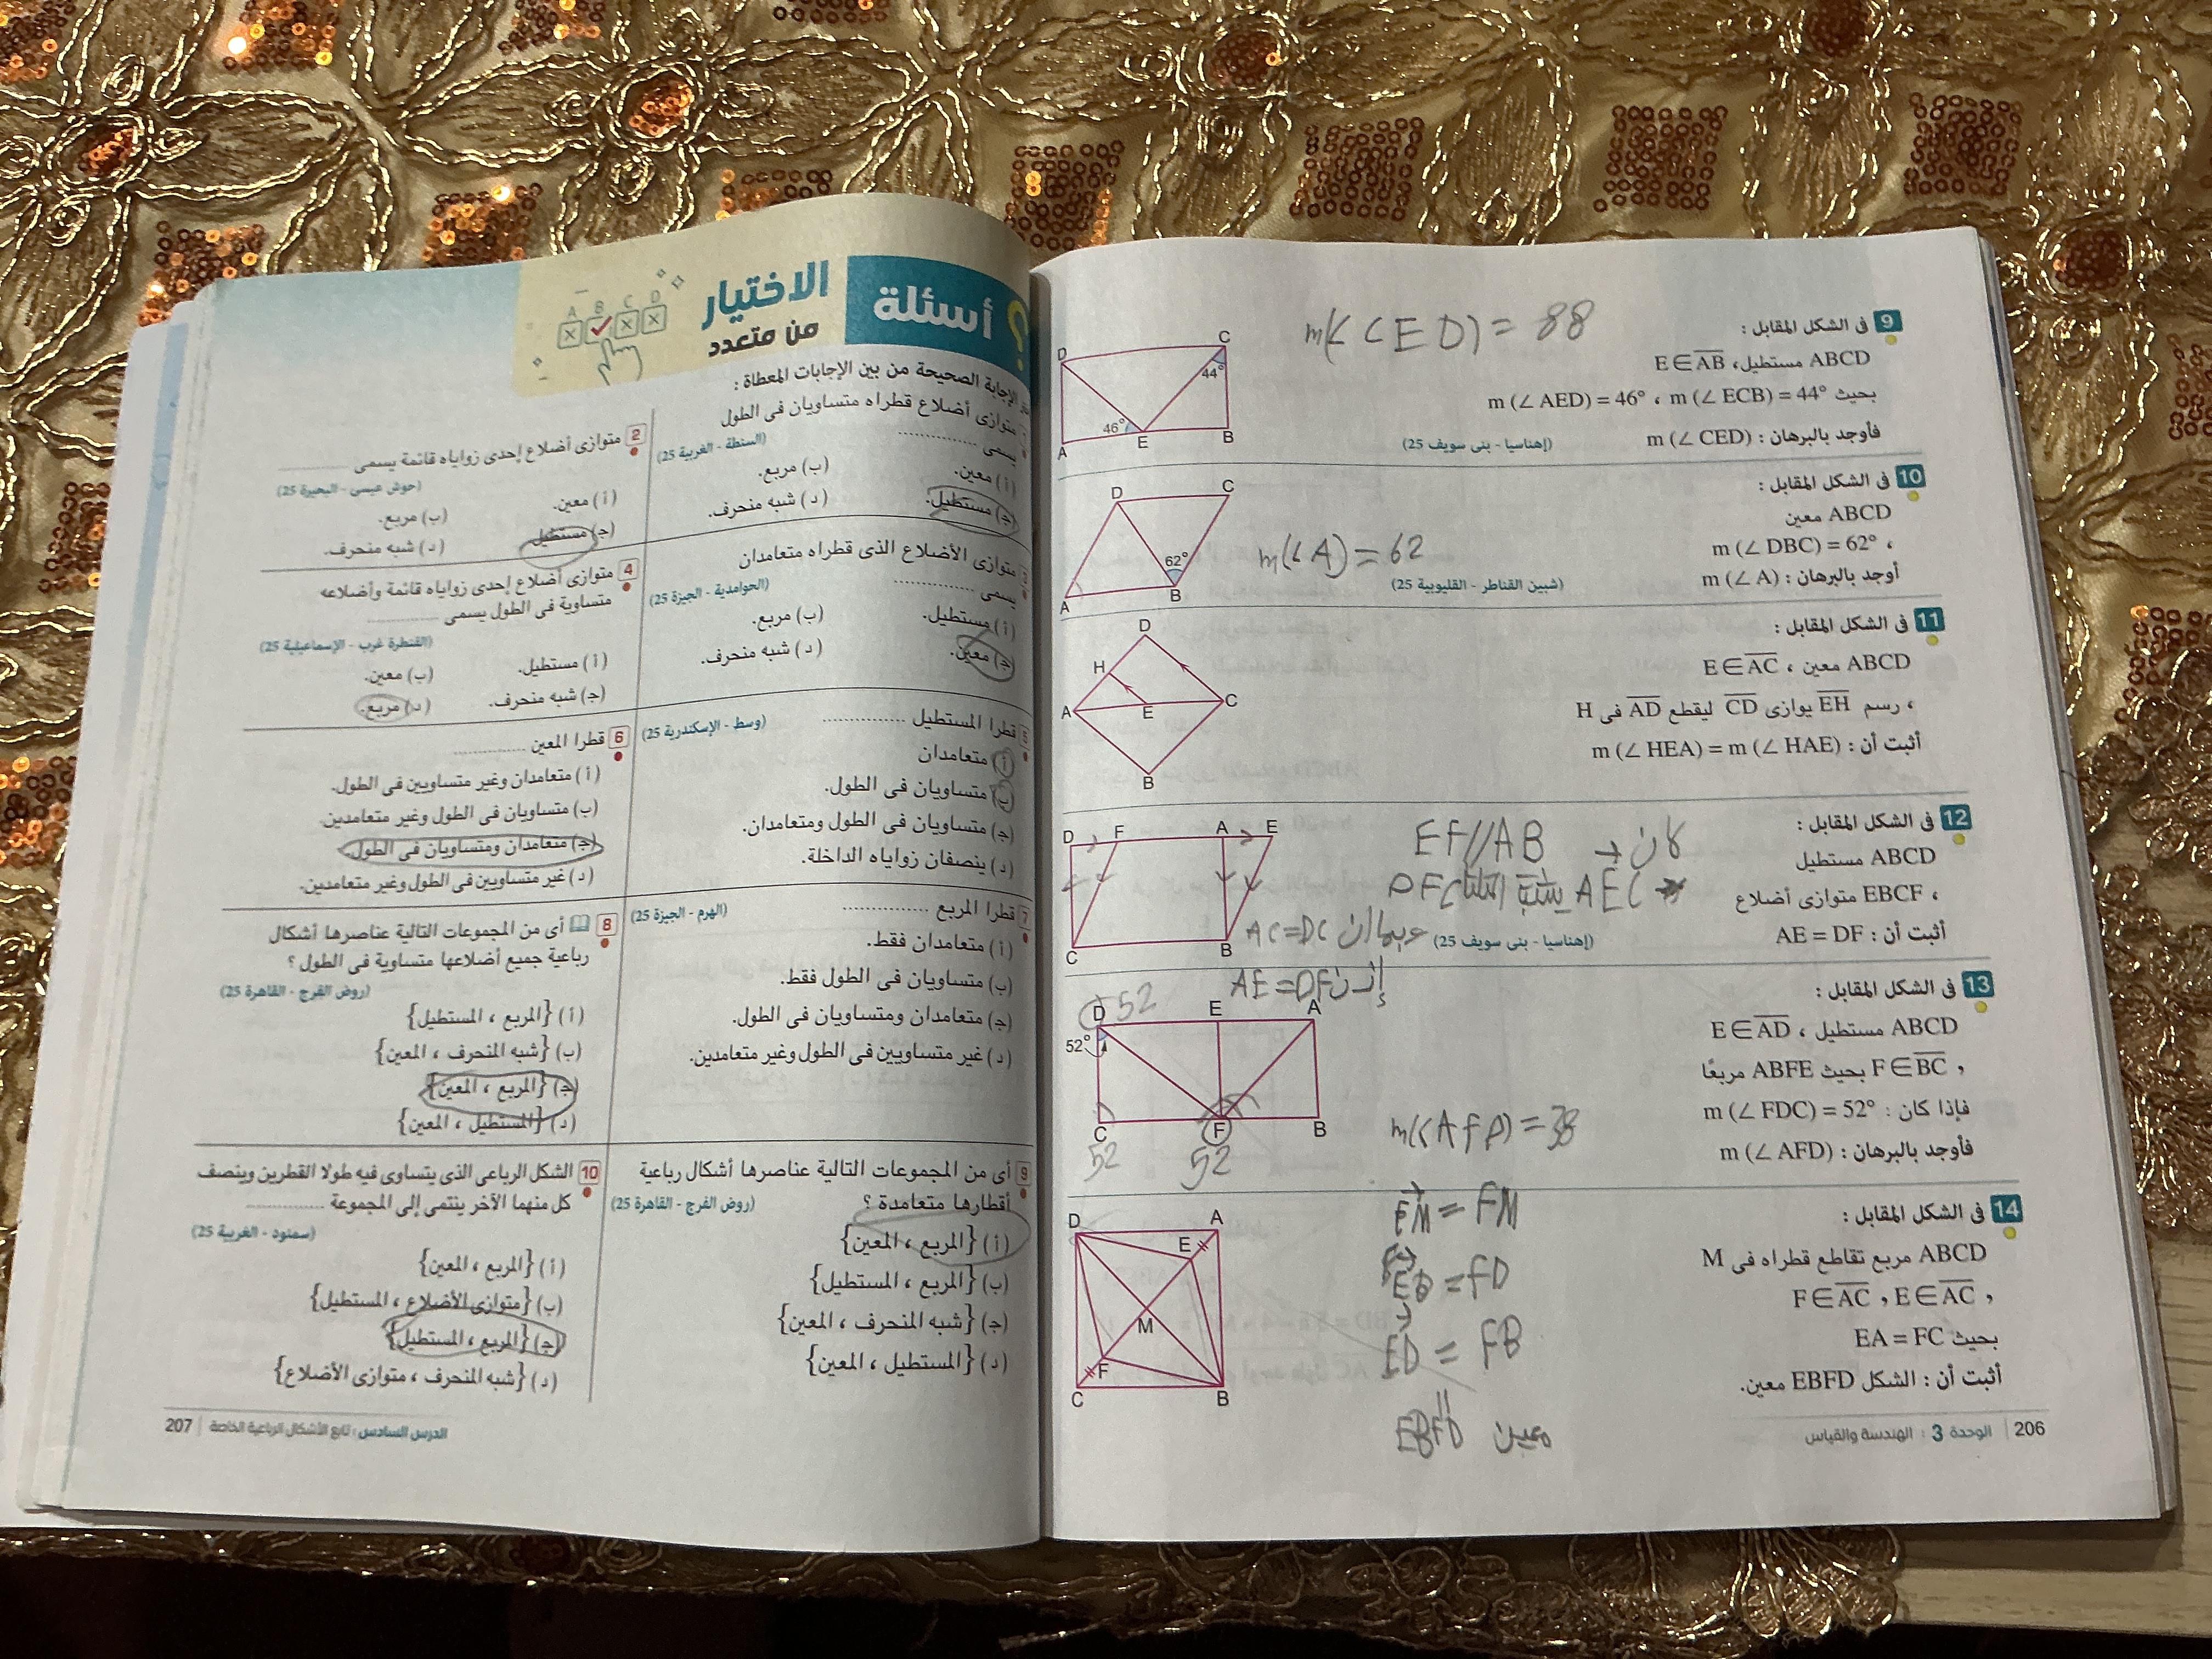 9 فى الشكل المقابل :
ABCD مستطيل، E ∈ AB
بحيث m (∠ AED) = 46° ، m (∠ ECB) = 44°
فأوجد بالبرهان : m (∠ CED)
(إهناسيا - بنى سويف 25)
m(< CED) = 88
D C 44° 46° A E B
10 فى الشكل المقابل :
ABCD معين
، m (∠ DBC) = 62°
أوجد بالبرهان : m (∠ A)
(شبين القناطر - القليوبية 25)
m(< A) = 62
D C 62° A B
11 فى الشكل المقابل :
ABCD معين ، E ∈ AC
، رسم EH يوازى CD ليقطع AD فى H
أثبت أن : m (∠ HEA) = m (∠ HAE)
D H A E C B
12 فى الشكل المقابل :
ABCD مستطيل
، EBCF متوازى أضلاع
أثبت أن : AE = DF
(إهناسيا - بنى سويف 25)
D F A E C B
EF//AB
AC=DC وبما ان
AE=DF إذن
13 فى الشكل المقابل :
ABCD مستطيل ، E ∈ AD
، F ∈ BC بحيث ABFE مربعًا
فإذا كان : m (∠ FDC) = 52°
فأوجد بالبرهان : m (∠ AFD)
52
D E A
52°
C F B
52 52
m(< AFD) = 38
14 فى الشكل المقابل :
ABCD مربع تقاطع قطراه فى M
، F ∈ AC ، E ∈ AC
بحيث EA = FC
أثبت أن : الشكل EBFD معين.
D A E M F C B
EM = FM
EB = FD
ED = FB
EBFD معين
206 | الوحدة 3 : الهندسة والقياس
? أسئلة الاختيار
من متعدد
A B C D
الإجابة الصحيحة من بين الإجابات المعطاة :
متوازى أضلاع قطراه متساويان فى الطول
يسمى ..............
(السنطة - الغربية 25)
(أ) معين.
(ب) مربع.
(ج) مستطيل.
(د) شبه منحرف.
2 متوازى أضلاع إحدى زواياه قائمة يسمى ..............
(حوش عيسى - البحيرة 25)
(أ) معين.
(ب) مربع.
(ج) مستطيل.
(د) شبه منحرف.
متوازى الأضلاع الذى قطراه متعامدان
يسمى ..............
(الحوامدية - الجيزة 25)
(أ) مستطيل.
(ب) مربع.
(ج) معين.
(د) شبه منحرف.
4 متوازى أضلاع إحدى زواياه قائمة وأضلاعه
متساوية فى الطول يسمى ..............
(القنطرة غرب - الإسماعيلية 25)
(أ) مستطيل.
(ب) معين.
(ج) شبه منحرف.
(د) مربع.
5 قطرا المستطيل ..............
(وسط - الإسكندرية 25)
(أ) متعامدان
(ب) متساويان فى الطول.
(ج) متساويان فى الطول ومتعامدان.
(د) ينصفان زواياه الداخلة.
6 قطرا المعين ..............
(أ) متعامدان وغير متساويين فى الطول.
(ب) متساويان فى الطول وغير متعامدين.
(ج) متعامدان ومتساويان فى الطول.
(د) غير متساويين فى الطول وغير متعامدين.
7 قطرا المربع ..............
(الهرم - الجيزة 25)
(أ) متعامدان فقط.
(ب) متساويان فى الطول فقط.
(ج) متعامدان ومتساويان فى الطول.
(د) غير متساويين فى الطول وغير متعامدين.
8 أى من المجموعات التالية عناصرها أشكال
رباعية جميع أضلاعها متساوية فى الطول ؟
(روض الفرج - القاهرة 25)
(أ) {المربع ، المستطيل}
(ب) {شبه المنحرف ، المعين}
(ج) {المربع ، المعين}
(د) {المستطيل ، المعين}
9 أى من المجموعات التالية عناصرها أشكال رباعية
أقطارها متعامدة ؟
(روض الفرج - القاهرة 25)
(أ) {المربع ، المعين}
(ب) {المربع ، المستطيل}
(ج) {شبه المنحرف ، المعين}
(د) {المستطيل ، المعين}
10 الشكل الرباعى الذى يتساوى فيه طولا القطرين وينصف
كل منهما الآخر ينتمى إلى المجموعة ..............
(سمنود - الغربية 25)
(أ) {المربع ، المعين}
(ب) {متوازى الأضلاع ، المستطيل}
(ج) {المربع ، المستطيل}
(د) {شبه المنحرف ، متوازى الأضلاع}
الدرس السادس : تابع الأشكال الرباعية الخاصة | 207